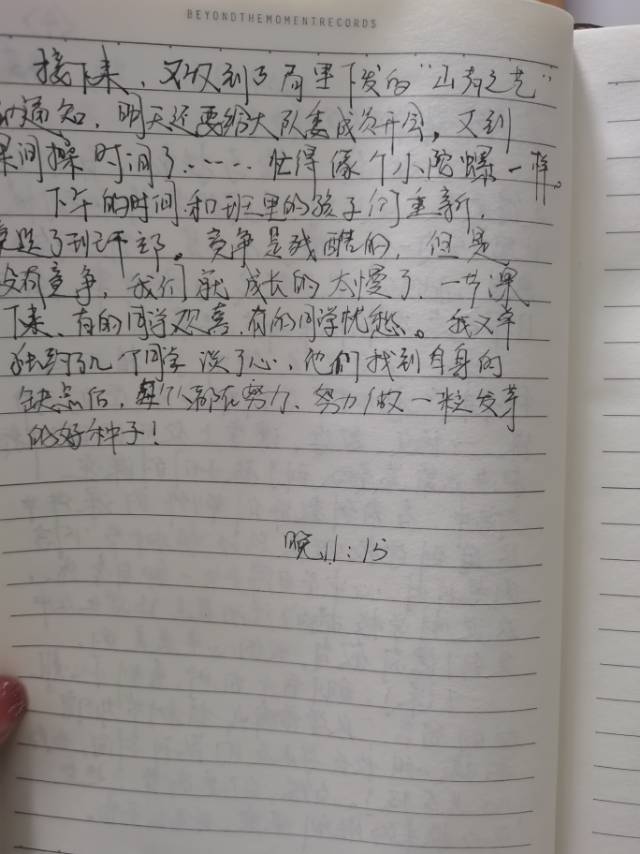 BEYONDTHEMOMENTRECORDS
接下来,又收到了局里下发的“山有之艺”
的通知,明天还要给大队委成员开会,又到
课间操时间了……忙得像个小陀螺一样。
下午的时间,和班里的孩子们重新
竞选了班干部。竞争是残酷的,但是
没有竞争,我们就成长的太慢了,一节课
下来,有的同学欢喜,有的同学忧愁。我又单
独约了几个同学谈了心,他们找到自身的
缺点后,每个人都在努力,努力做一粒发芽
的好种子!
晚11:15